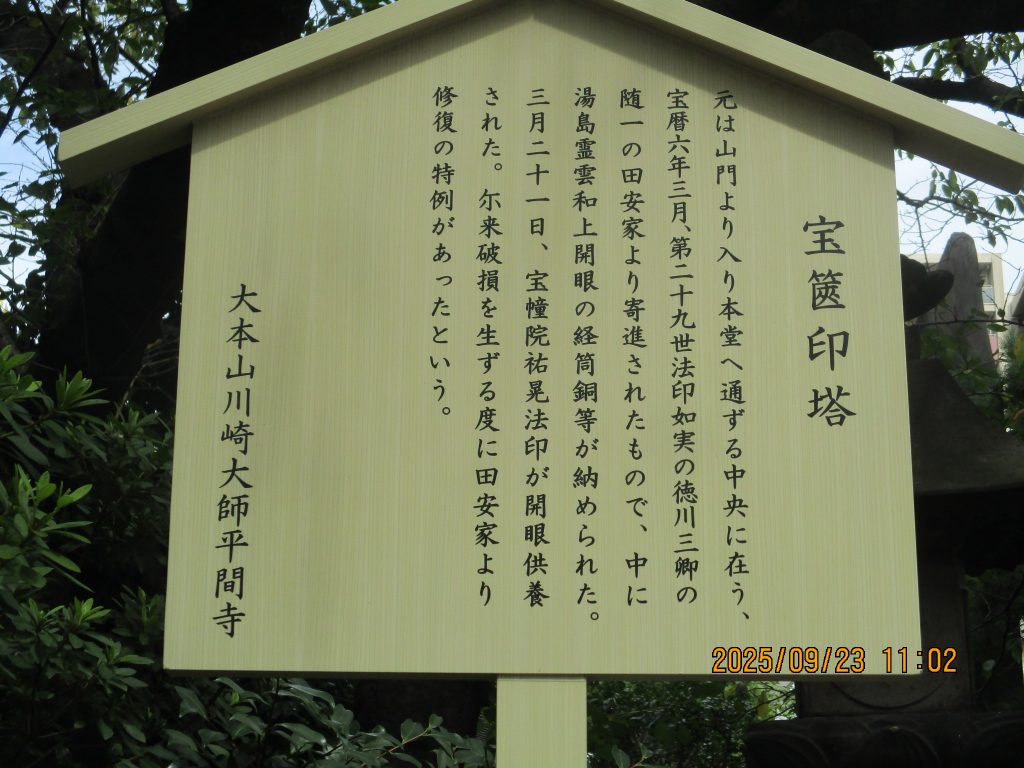 宝篋印塔
元は山門より入り本堂へ通ずる中央に在う、
宝暦六年三月、第二十九世法印如実の徳川三卿の
随一の田安家より寄進されたもので、中に
湯島霊雲和上開眼の経筒銅等が納められた。
三月二十一日、宝幢院祐晃法印が開眼供養
された。尓来破損を生ずる度に田安家より
修復の特例があったという。
大本山川崎大師平間寺
2025/09/23 11:02